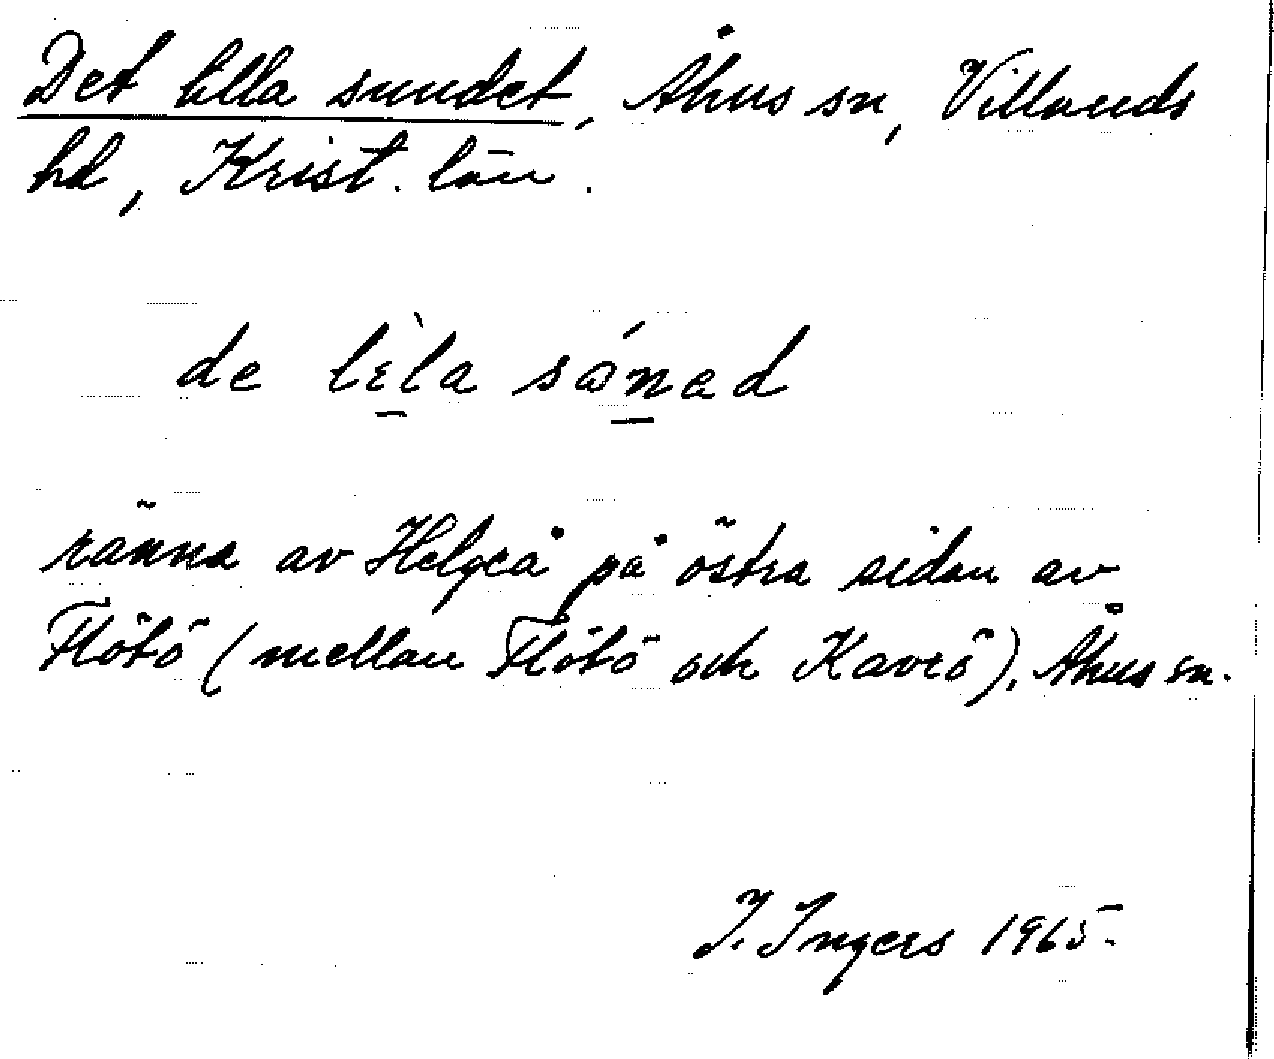 Det lilla sundet, Åhus sn, Villands
hd, Krist. län.
de lɛ̀la sónad
ränna av Helgeå på östra sidan av
Flötö (mellan Flötö och Kavrö), Åhus sn.
I. Ingers 1965.